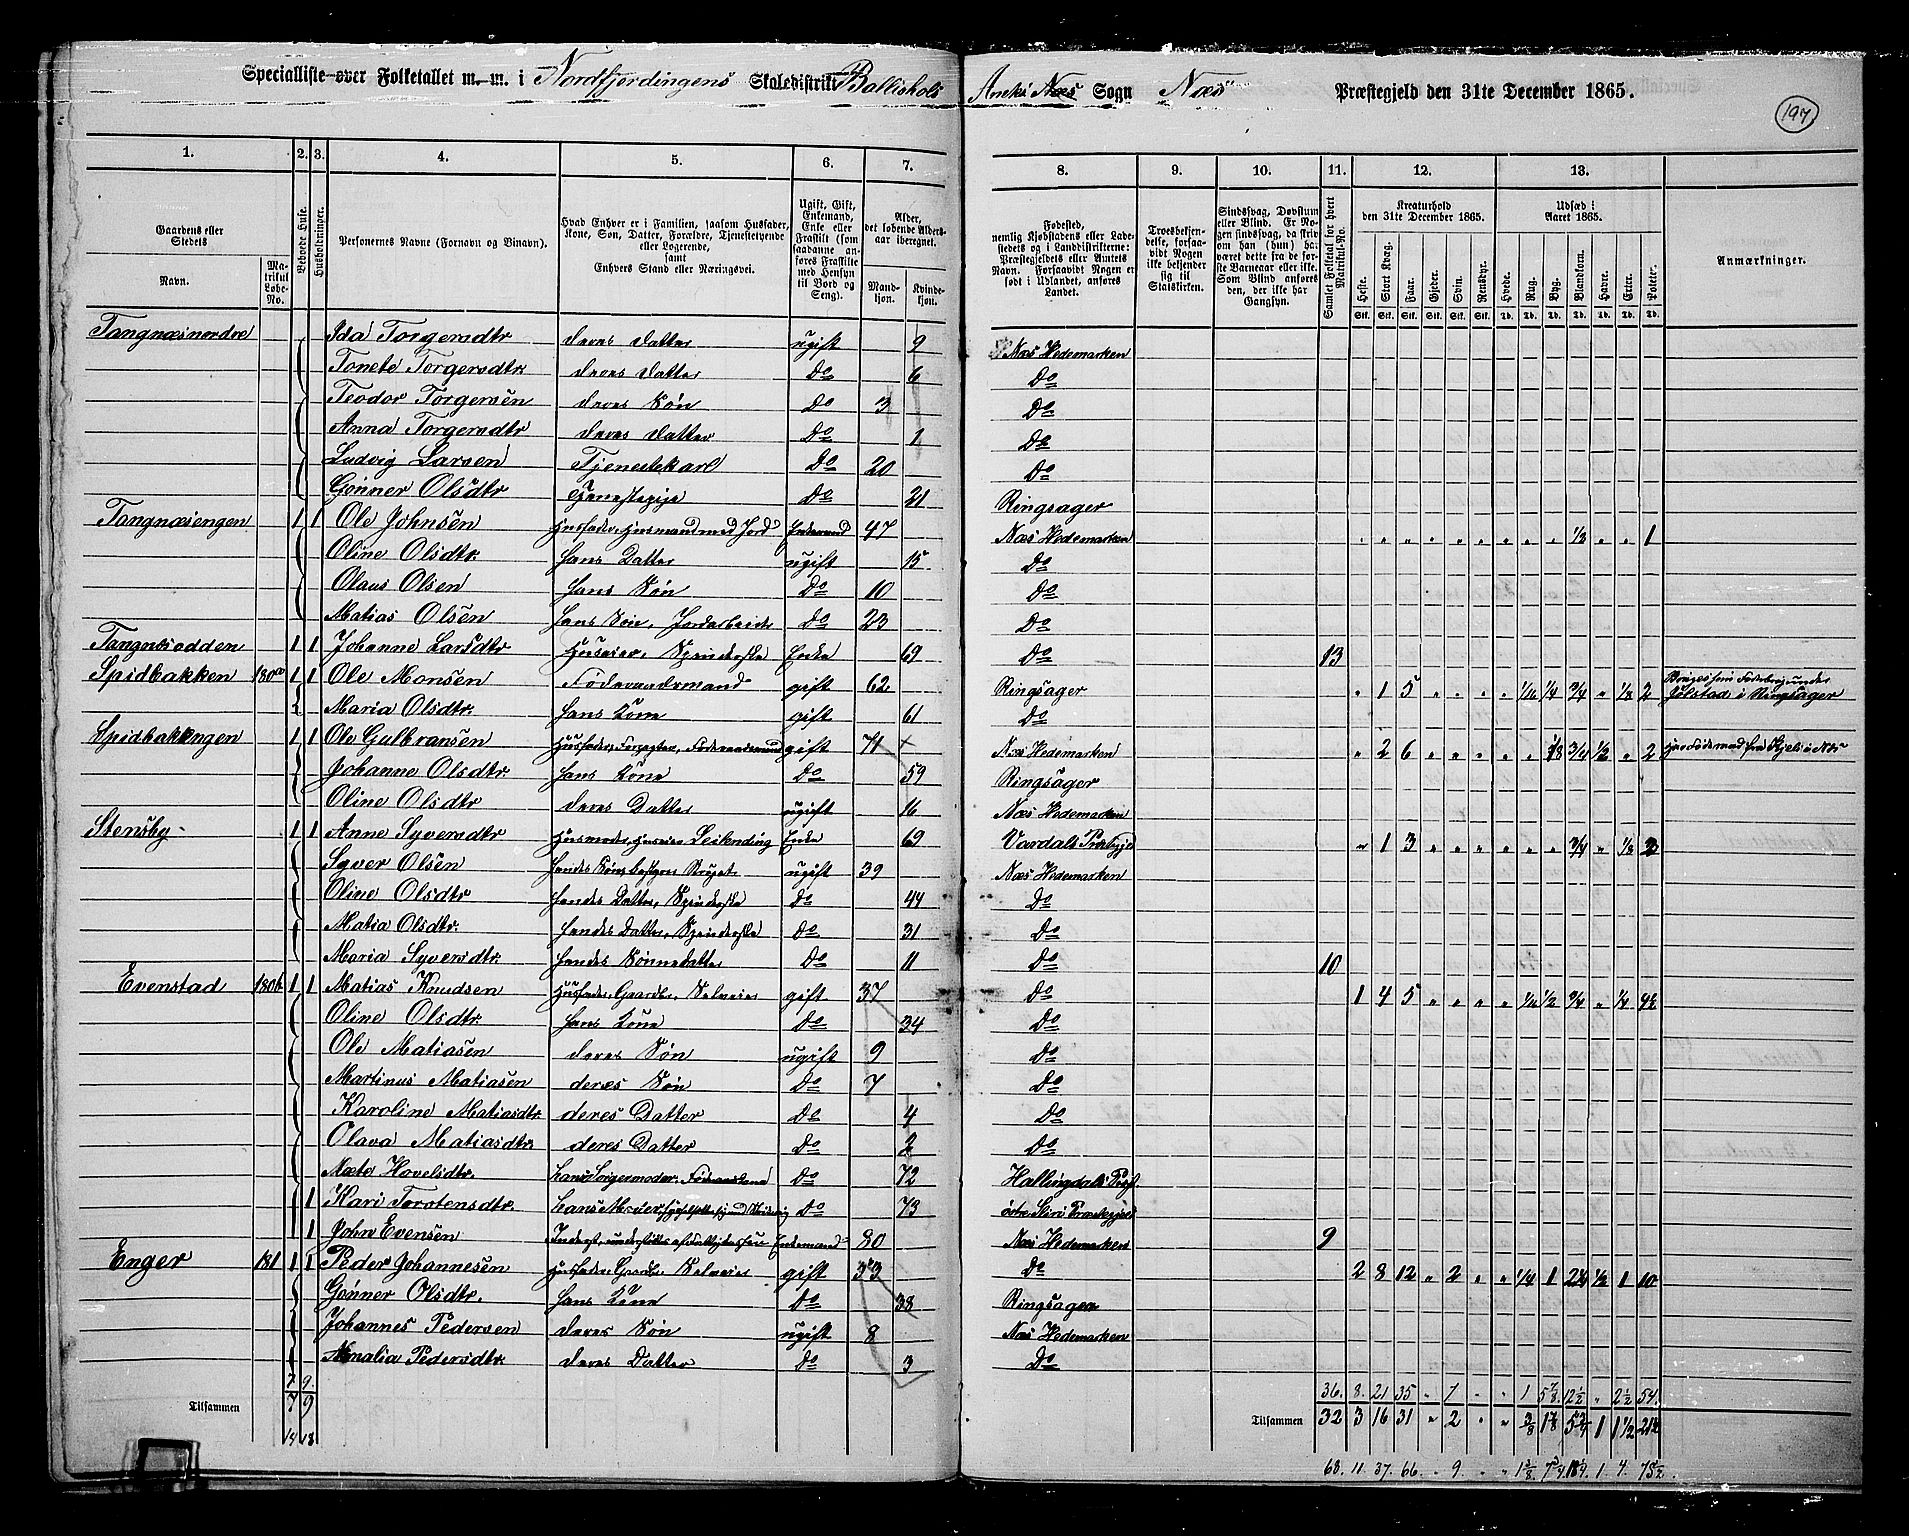 Specialliste over Folketallet m. m. i Nordfjerdingens Skoledistrikt Ballishols Aneks Næs Sogn Næs Præstegjeld den 31te December 1865.
197
1. 2. 3. 4. 5. 6. 7. 8. 9. 10. 11. 12. 13.
Gaardens eller Stedets Navn. Matrikul Løbe-No. Beboede Huse. Husholdninger. Personernes Navne (Fornavn og Binavn). Hvad Enhver er i Familien, saasom Husfader, Kone, Søn, Datter, Forældre, Tjenestetyende eller Logerende, samt Enhvers Stand eller Næringsvei. Ugift, Gift, Enkemand, Enke eller Fraskilt (som saadanne anføres Fraskilte med Hensyn til Bord og Seng). Alder, det løbende Alders-aar iberegnet. Mand-kjøn. Kvinde-kjøn.
Fødested, nemlig Kjøbstadens eller Ladestedets og i Landdistrikterne: Præstegjeldets eller Amtets Navn. Forsaavidt Nogen er født i Udlandet, anføres Landet. Troesbekjendelse, forsaavidt Nogen ikke bekjender sig til Statskirken. Sindssvag, Døvstum eller Blind. Er Nogen sindssvag, da skrives om han (hun) har været dette fra de første Barneaar eller ikke. Som Blind anføres den, der ikke har Gangsyn. Samlet Folketal for hvert Matrikul-No. Kreaturhold den 31te December 1865. Heste. Stort Kvæg. Faar. Gjeder. Svin. Rensdyr. Udsæd i Aaret 1865. Hvede. Rug. Byg. Blandkorn. Havre. Erter. Poteter. Anmærkninger.
Stk. Stk. Stk. Stk. Stk. Stk. Td. Td. Td. Td. Td. Td. Td.
Tangnæsnordre Ida Torgersdtr deres Datter ugift 9 Næs Hedemarken
Tonete Torgersdtr. deres Datter Do 6 Do
Teodor Torgersen deres Søn Do 3 Do
Anna Torgersdtr deres Datter Do 1 Do
Ludvig Larsen Tjenestekarl Do 20 Do
Gønner Olsdtr Tjenestepige Do 21 Ringsager
Tangnæsengen 1 1 Ole Johnsen Husfader, Husmand med Jord Enkemand 47 Næs Hedemarken " " " " " " " " " 1/2 " " 1
Oline Olsdtr. hans Datter ugift 15 Do
Olaus Olsen hans Søn Do 10 Do
Matias Olsen hans Søn, Jordarbeider Do 23 Do
Tangnæsodden 1 1 Johanne Larsdtr Huseier, Spinderske Enke 69 Do 13
Spidbakken 180a 1 1 Ole Monsen Føderaadsmand gift 62 Ringsager " 1 5 " " " " 1/16 1/4 3/4 " 1/8 2 Jølstad i Ringsager
Maria Olsdtr. hans Kone gift 61 Do
Spidbakkengen 1 1 Ole Gulbransen Husfader, Føderaadsmand gift 71 Næs Hedemarken " 2 6 " " " " " 1/8 3/4 1/2 " 2
Johanne Olsdtr hans Kone Do 59 Ringsager
Oline Olsdtr deres Datter ugift 16 Næs Hedemarken
Stensby 1 1 Anne Syversdtr Enke 69 Vardals " 1 3 " " " " " " 3/4 " 1/8 2
Syver Olsen ugift 39 Næs Hedemarken
Oline Olsdtr hendes Datter, Spinderske Do 44 Do
Matia Olsdtr. hendes Datter, Spinderske Do 31 Do
Maria Syversdtr. hendes Sønnedatter Do 11 Do 10
Evenstad 180b 1 1 Matias Knudsen Husfader, Gaardbr. Selveier gift 37 Do 1 4 5 " " " " 1/16 1/2 3/4 " 1/4 4 1/2
Oline Olsdtr. hans Kone Do 34 Do
Ole Matiasen deres Søn ugift 9 Do
Martinus Matiasen deres Søn Do 7 Do
Karoline Matiasdtr. deres Datter Do 4 Do
Olava Matiasdtr. deres Datter Do 2 Do
Mæte Hovelsdtr. hans Svigermoder, Do 72 Hallingdals
1 Kari Torstensdtr. hans Moder Do 73
1 John Evensen Inderst, understøttes af Enkemand 80 Næs Hedemarken 9
Enger 181 1 1 Peder Johannesen Husfader, Gaardbr. Selveier gift 33 Do 2 8 12 " 2 " " 1/4 1 2 1/2 1/2 1 10
Gønner Olsdtr. hans Kone Do 38 Ringsager
Johannes Pedersen deres Søn ugift 8 Næs Hedemarken
Amalia Pedersdtr. deres Datter Do 3 Do
7 9. 36. 8. 21 35 " 7 " " 1 5 7/8 12 1/2 " 2 1/2 54.
Tilsammen 7 9 Tilsammen 32 3 16 31 " 2 " " 3/8 1 7/8 5 3/4 1 1 1/2 21 1/2
14 18 68. 11. 37. 66. " 9. " " 1 3/8 7 3/4 18 1/4 1 4. 75 1/2